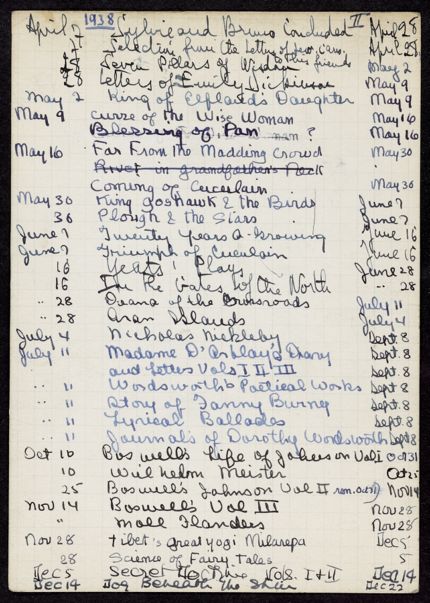 1938
April 7 Sylvie and Bruno Concluded II April 28
Selection from the Letters of Geo. to his friends April 28
Seven Pillars of Wisdom May 2
28 Letters of Emily Dickinson May 9
May 2 King of Elfland's Daughter May 9
May 9 Curse of the Wise Woman May 16
Blessing of Pan ? May 16
May 16 Far From the Madding Crowd May 30
River in grandfather's Neck
Coming of Cuculain May 30
May 30 King Goshawk & the Birds June 7
30 Plough & the Stars June 7
June 7 Twenty Years A-Growing June 16
June 7 Triumph of Cuculain June 16
16 Yeats' Plays June 28
16 In the Gates of the North " 28
" 28 Deana of the Crossroads July 11
" 28 Aran Islands July 4
July 4 Nicholas Nickleby Sept. 8
July 11 Madame D'Arblay's Diary Sept. 8
and Letters Vols I II III
" 11 Wordsworth's Poetical Works Sept 8
" 11 Story of Fanny Burney Sept. 8
" 11 Lyrical Ballades Sept. 8
" 11 Journals of Dorothy Wordsworth Sept 8
Oct 10 Boswell's Life of Johnson Vol I Oct 31
10 Wilhelm Meister Oct 25
25 Boswell's Johnson Vol II Nov 14
Nov 14 Boswell's Vol III Nov 28
" Moll Flanders Nov 28
Nov 28 Tibet's great yogi Milarepa Dec 5
28 Science of Fairy Tales 5
Dec 5 Secret Doctrine Vols. I + II Dec 14
Dec 14 Dog Beneath the Skin Dec 22